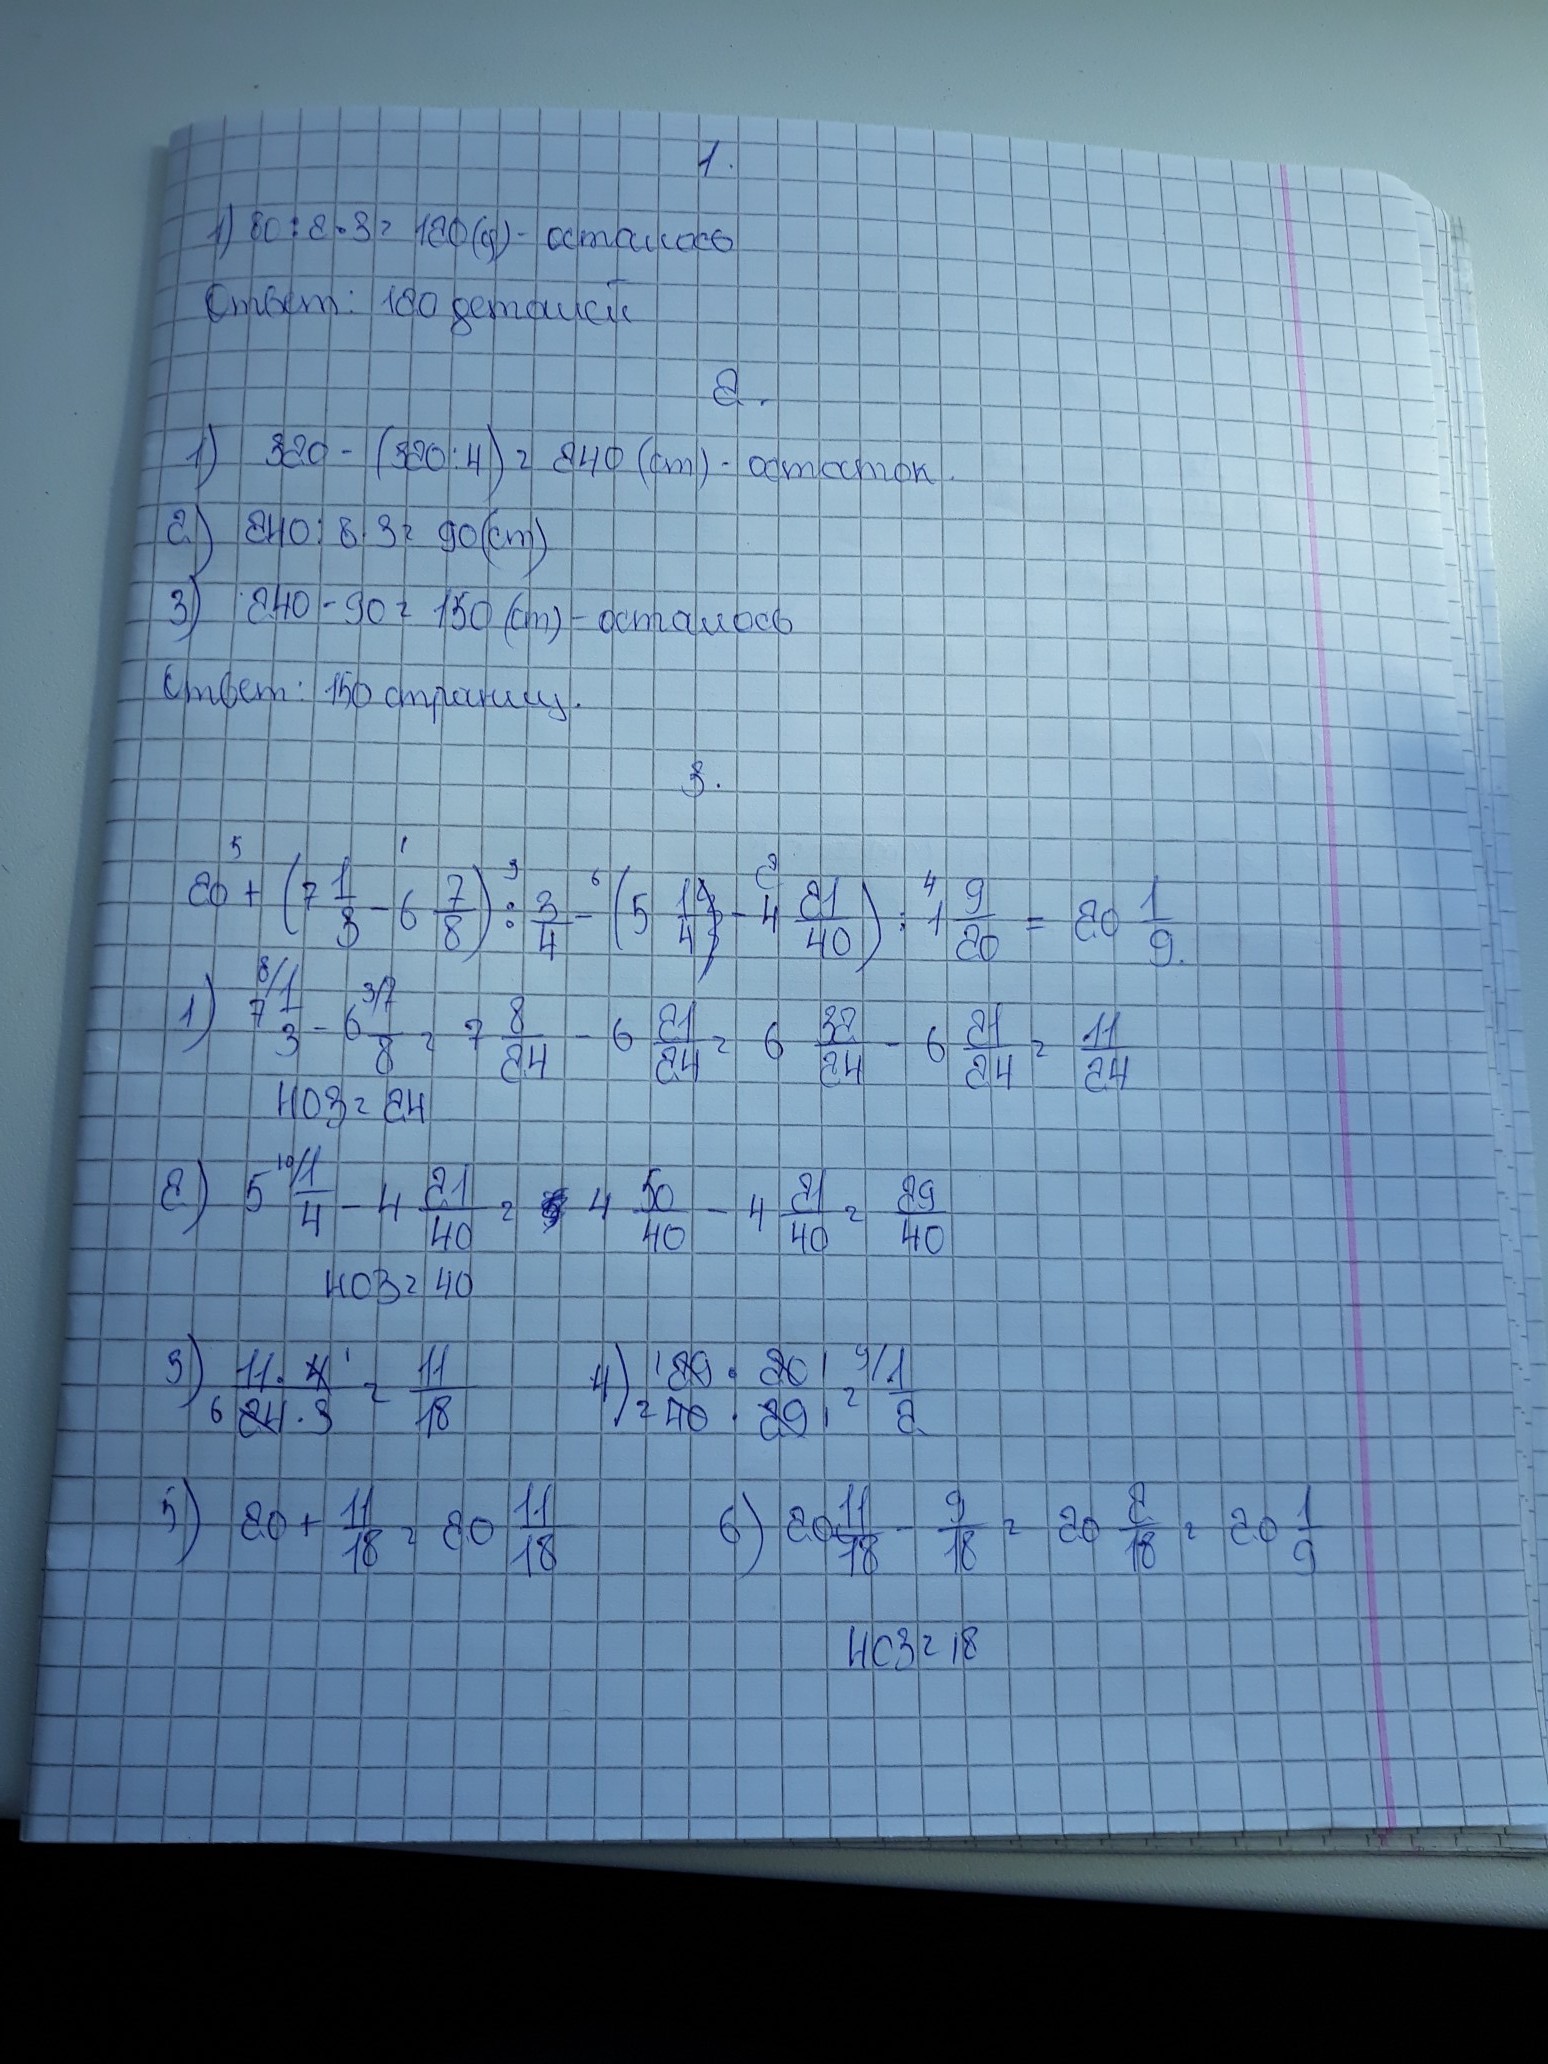 1.
1) 80 : 2 · 3 = 120 (д) - осталось
Ответ: 120 деталей
2.
1) 320 - (320 : 4) = 240 (ст) - остаток.
2) 240 : 8 · 3 = 90 (ст)
3) 240 - 90 = 150 (ст) - осталось
Ответ: 150 страниц.
3.
5 1 3 6 2 4
20 + (7 1/3 - 6 7/8) : 3/4 - (5 1/4 - 4 21/40) : 1 9/20 = 20 1/9.
1) 7 8/1/3 - 6 3/7/8 = 7 8/24 - 6 21/24 = 6 32/24 - 6 21/24 = 11/24
НОЗ = 24
2) 5 10/1/4 - 4 21/40 = 4 50/40 - 4 21/40 = 29/40
НОЗ = 40
3) 11 · 4 1 / 6 24 · 3 = 11/18 4) 1 29 · 20 1 / 2 40 · 29 1 = 9/1/2
5) 20 + 11/18 = 20 11/18 6) 20 11/18 - 9/18 = 20 2/18 = 20 1/9
НОЗ = 18